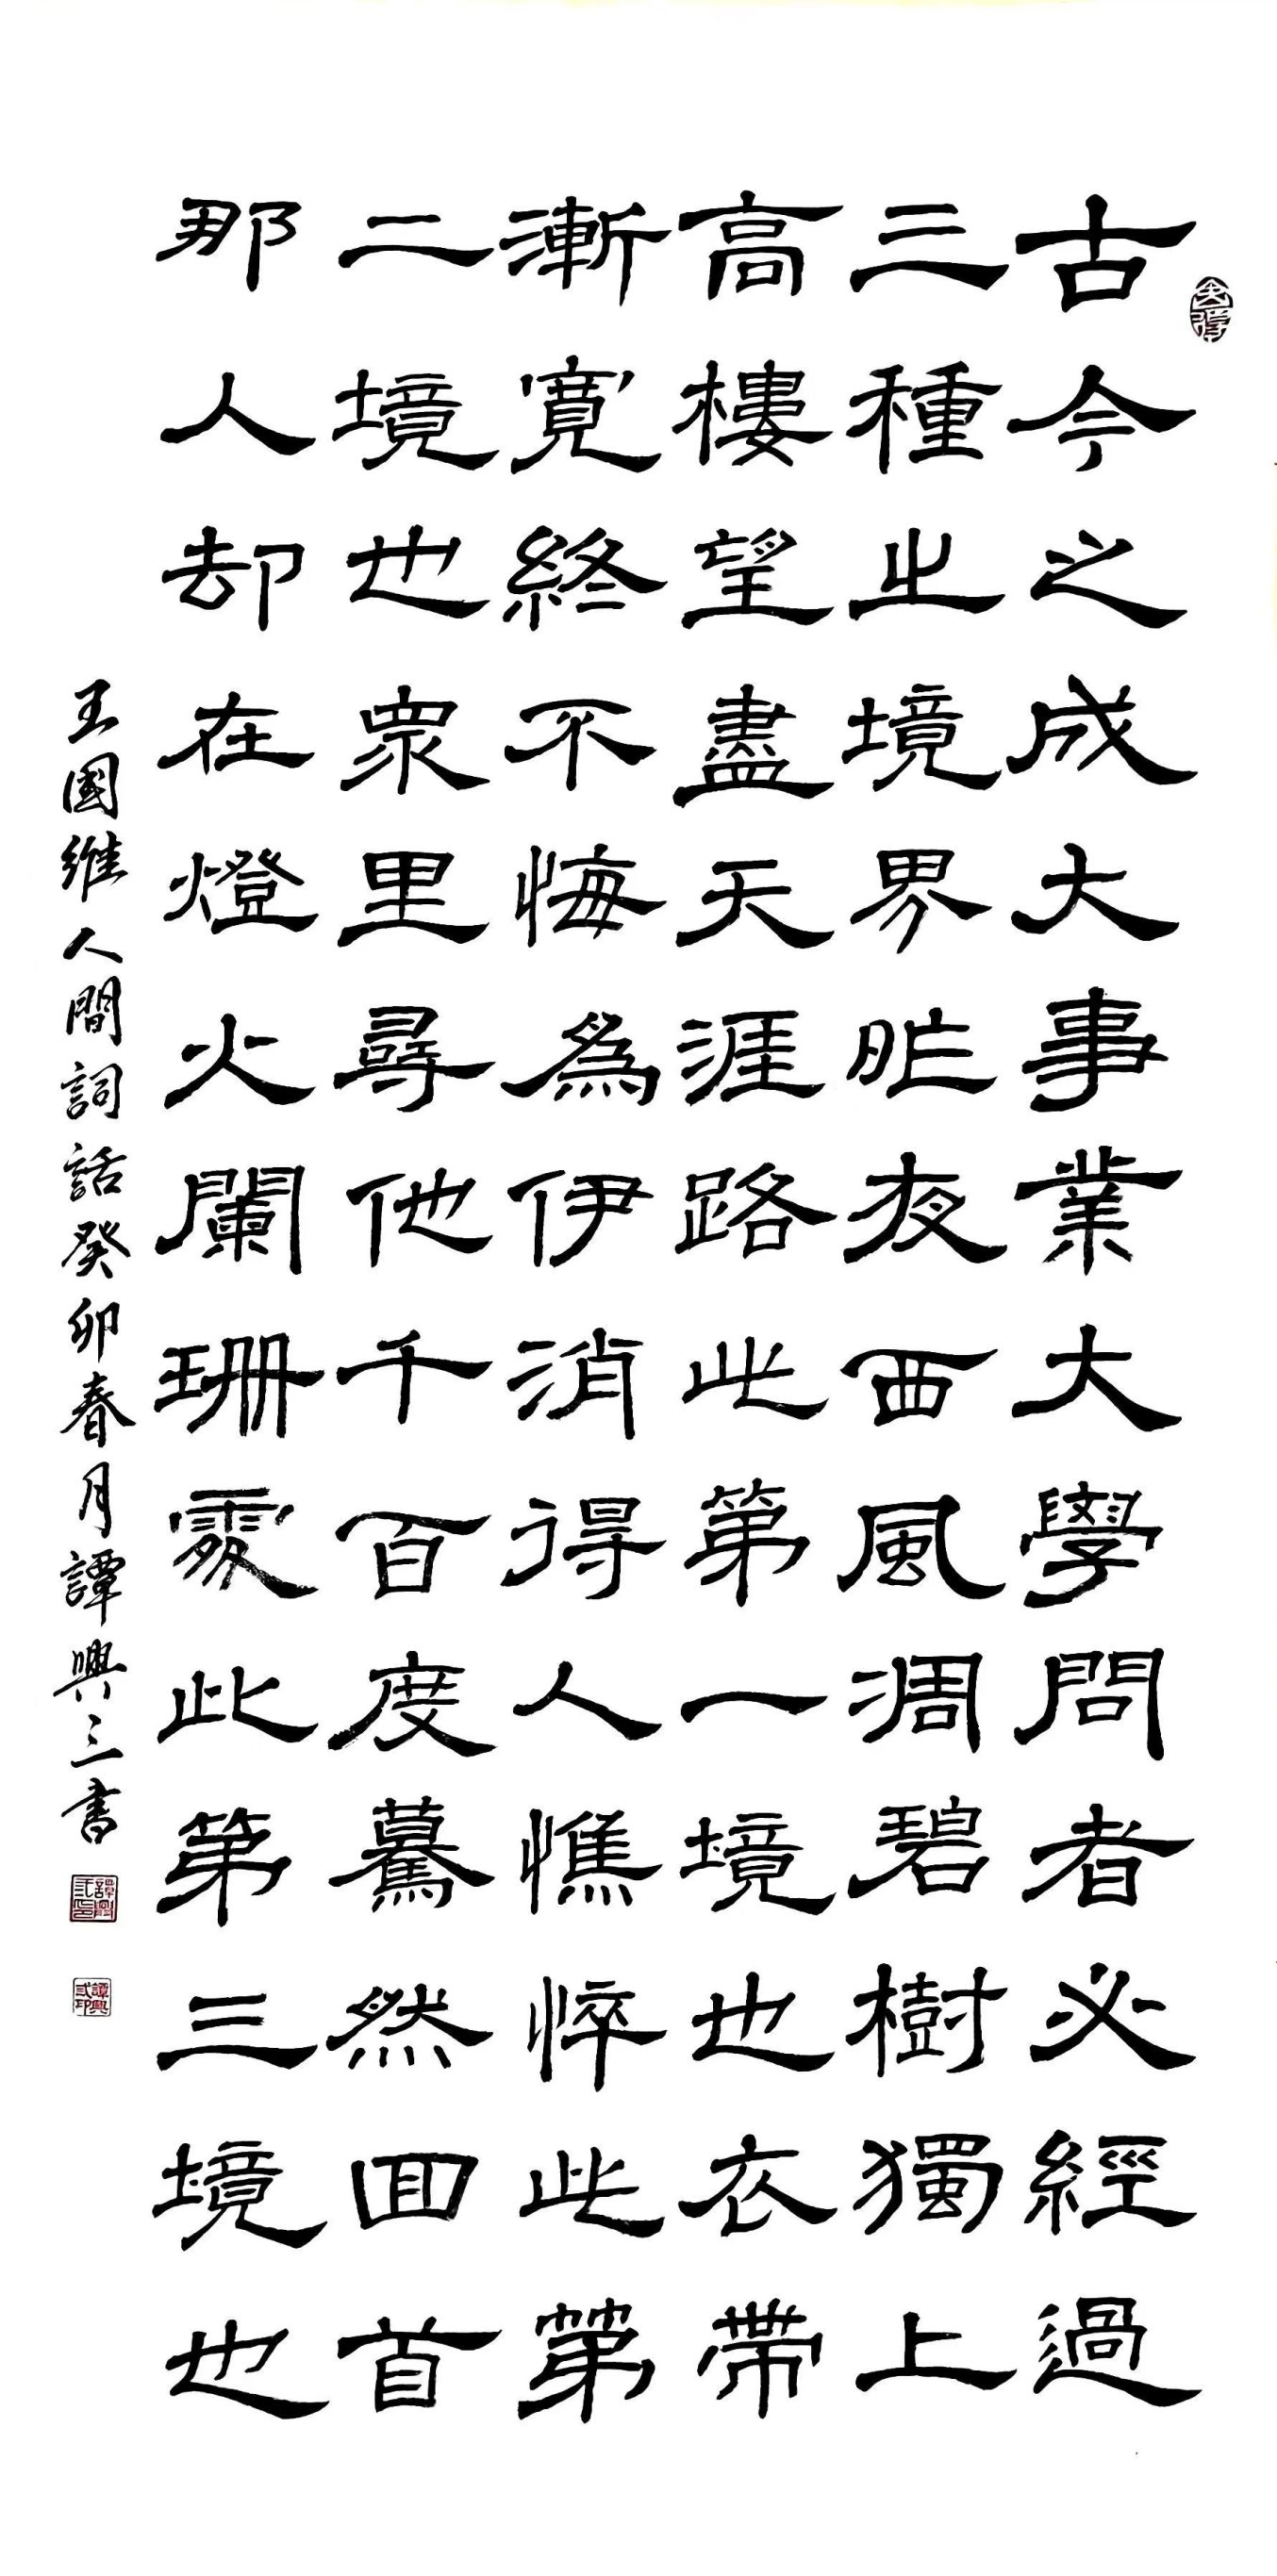 古今之成大事業大學問者必經過
三種之境界昨夜西風凋碧樹獨上
高樓望盡天涯路此第一境也衣帶
漸寬終不悔為伊消得人憔悴此第
二境也眾里尋他千百度驀然回首
那人却在燈火闌珊處此第三境也
王國維人間詞話癸卯春月譚興三書